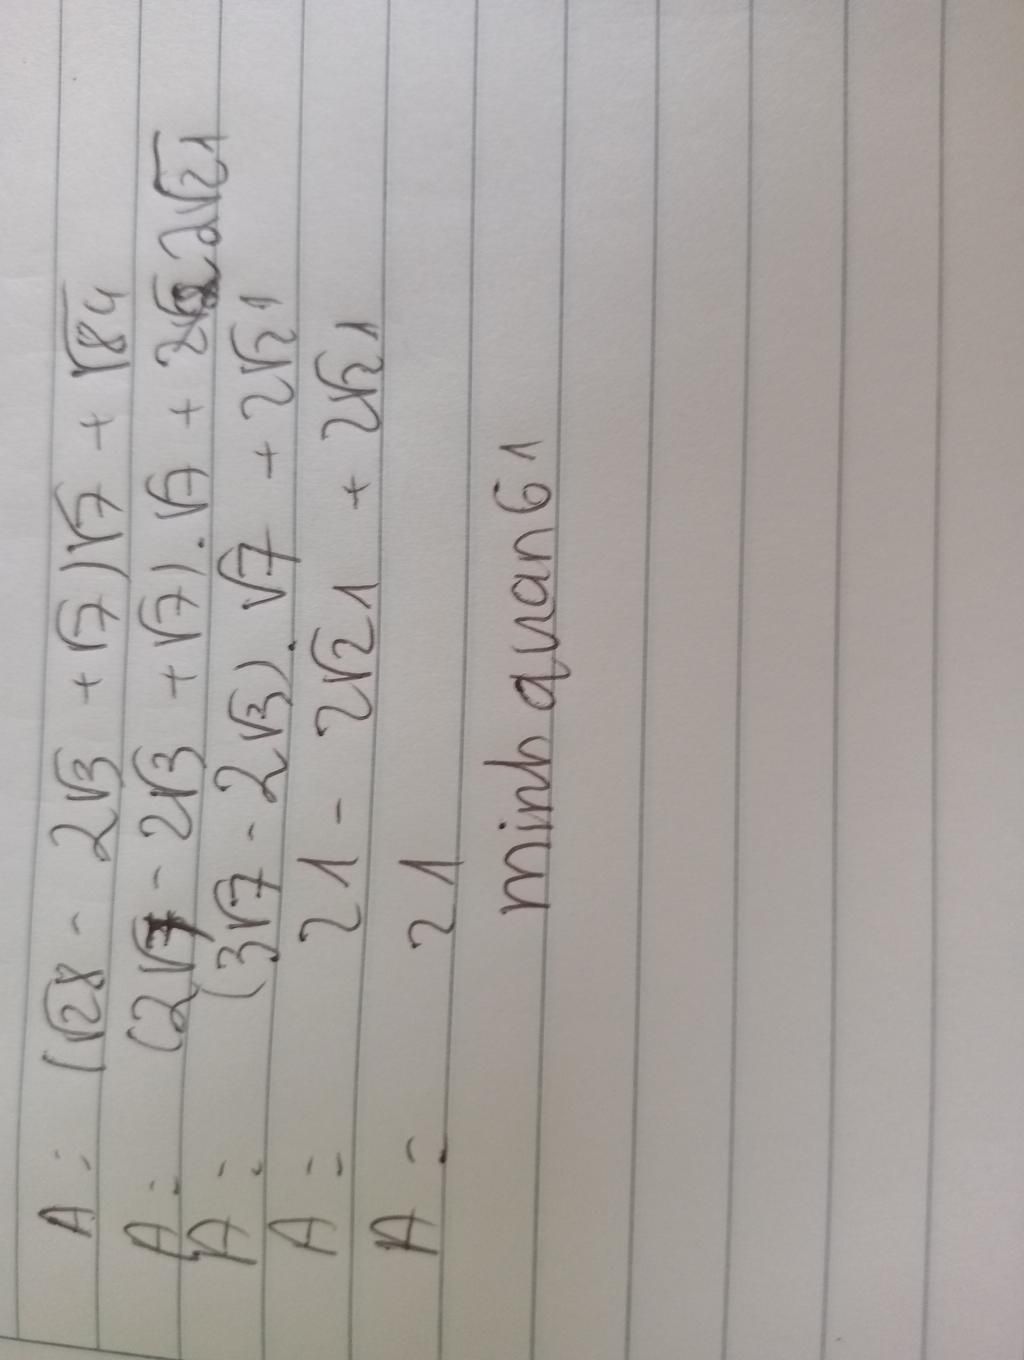 A = (√28 - 2√3 + √7)√7 + √84
A = (2√7 - 2√3 + √7).√7 + 2√21
A = (3√7 - 2√3).√7 + 2√21
A = 21 - 2√21 + 2√21
A = 21
minhquan61